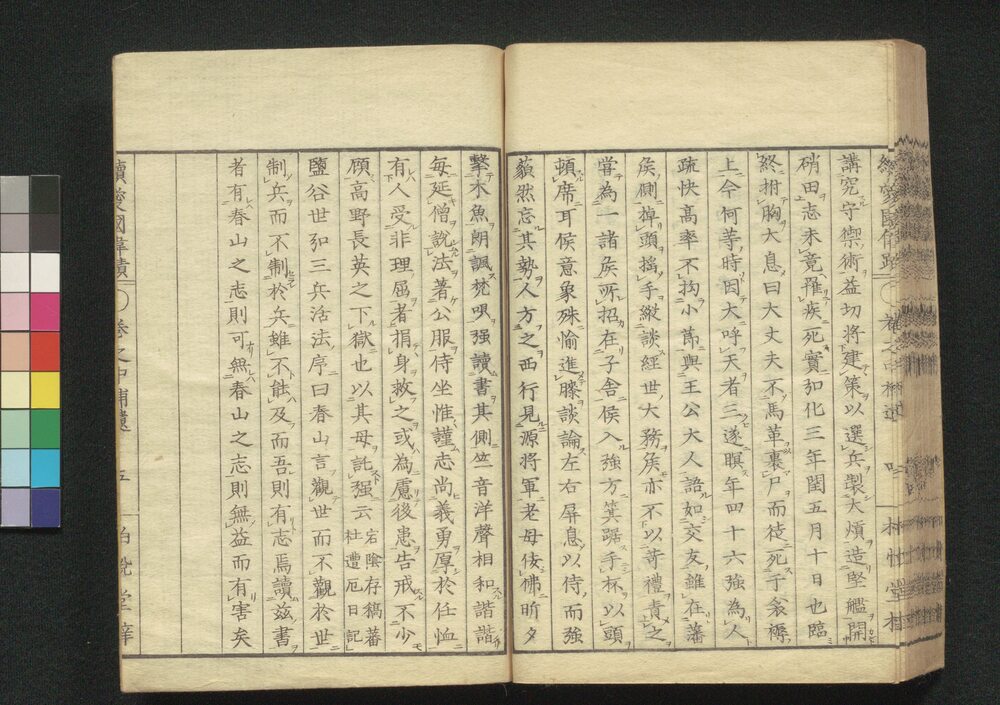 講究守禦術益切將建策以選兵製大熕造堅艦開
硝田志未竟罹疾死實弘化三年閏五月十日也臨
終拊胸大息曰大丈夫不馬革裹尸而徒死于衾褥
上今何等時因大呼天者三遂瞑年四十六強為人
疏快高率不拘小節與王公大人語如交友雖在藩
侯側掉頭搖手縱談經世大務侯亦不以苛禮責之
嘗為一諸侯所招在子舍侯入強方箕踞手杯以頭
頓席耳侯意象殊愉進膝談論左右屏息以侍而強
藐然忘其勢人方之西行見源將軍老母佞佛昕夕
擊木魚朗諷梵唄强讀書其側竺音洋聲相和諧諧
每延僧說法著公服侍坐惟謹志尚義勇厚於任恤
有人受非理屈者捐身救之或為慮後患告戒不少
顧高野長英之下獄也以其母託强云 宏陰存稿蕃社遭厄日記
鹽谷世弘三兵活法序曰春山言觀世而不觀於世
制兵而不制於兵雖不能及而吾則有志焉讀茲書
者有春山之志則可無春山之志則無益而有害矣
續愛國偉績 〇卷之中補遺 五